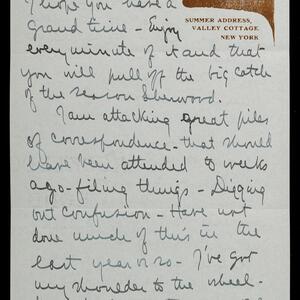 I hope you have a
grand time - Enjoy
every minute of it and that
you will pull off the big catch
of the season Sherwood.
I am attacking great piles
of correspondence - that should
have been attended to weeks
ago - filing things - Digging
out confusion - Have not
done much of this in the
last year or so - I've got
my shoulder to the wheel -
SUMMER ADDRESS,
VALLEY COTTAGE,
NEW YORK